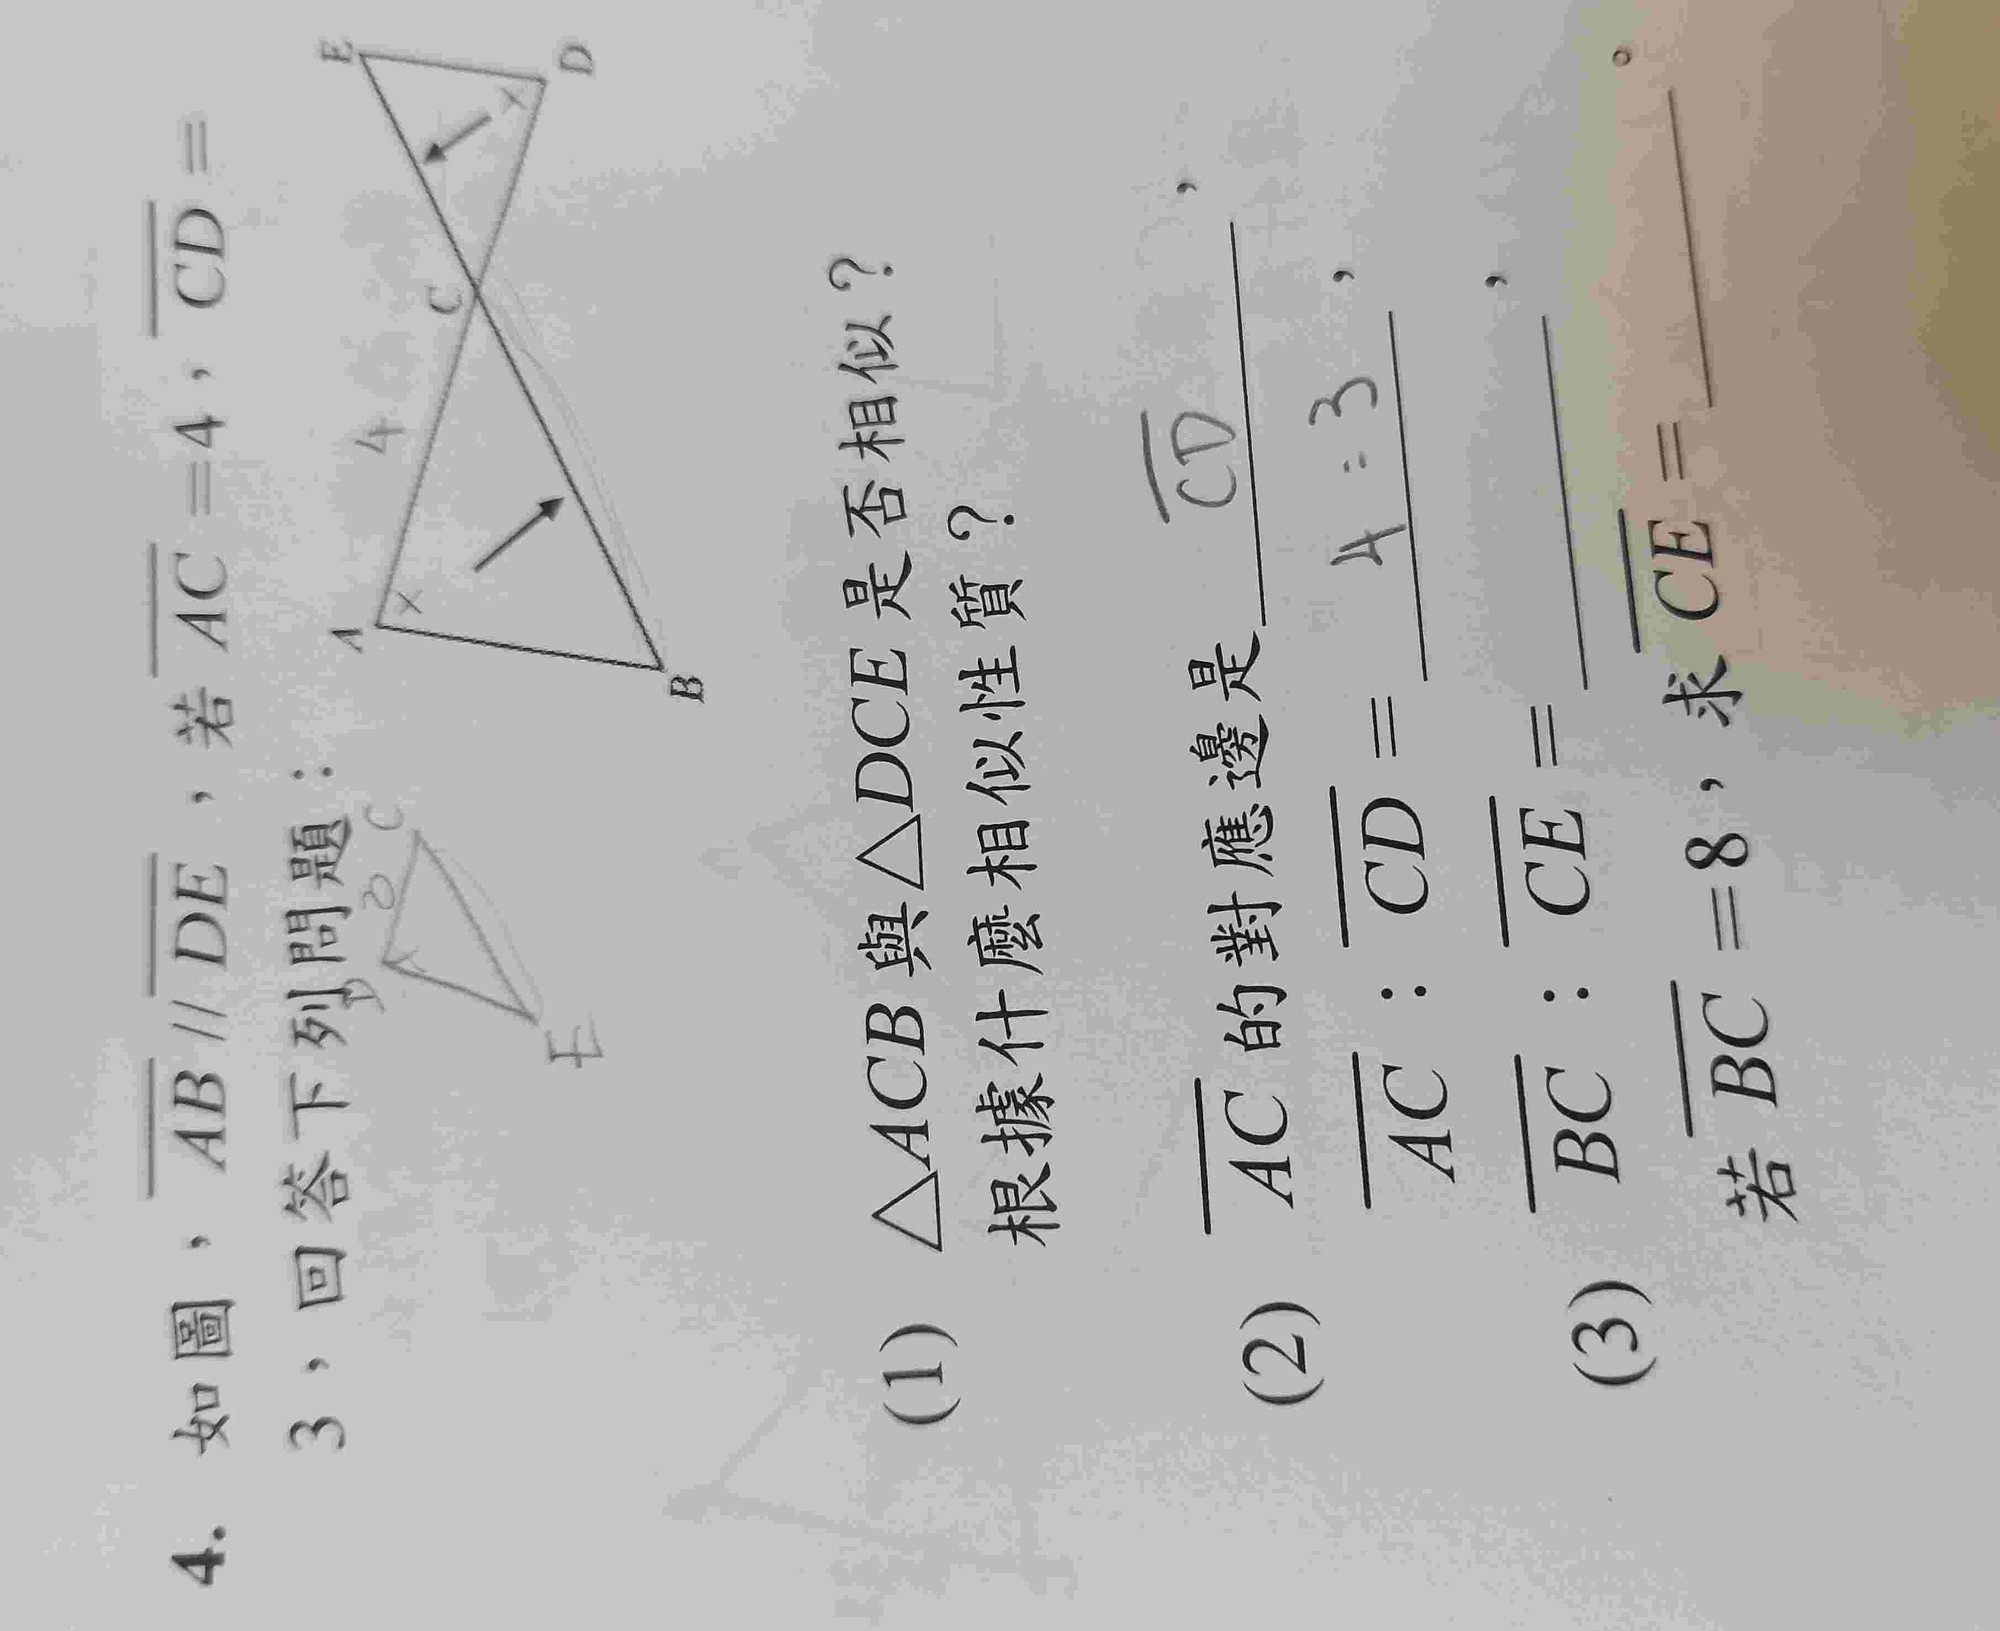 4. 如圖，AB // DE，若 AC =4，CD =
3，回答下列問題：
A
4
C
E
D
B
D
3
C
E
(1) △ACB 與△DCE 是否相似？
根據什麼相似性質？
(2) AC 的對應邊是 CD ，
AC：CD = 4:3 ，
(3) BC：CE = ，
若 BC =8，求 CE = 。